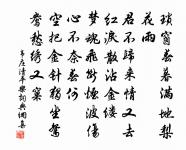 瑣窗春暮滿地梨
花雨
君不歸來情又去
紅淚散沾金縷
夢魂飛斷煙波傷
心不奈春何
空把金針獨坐鴛
鴦愁繡雙窠
韋庄清平樂